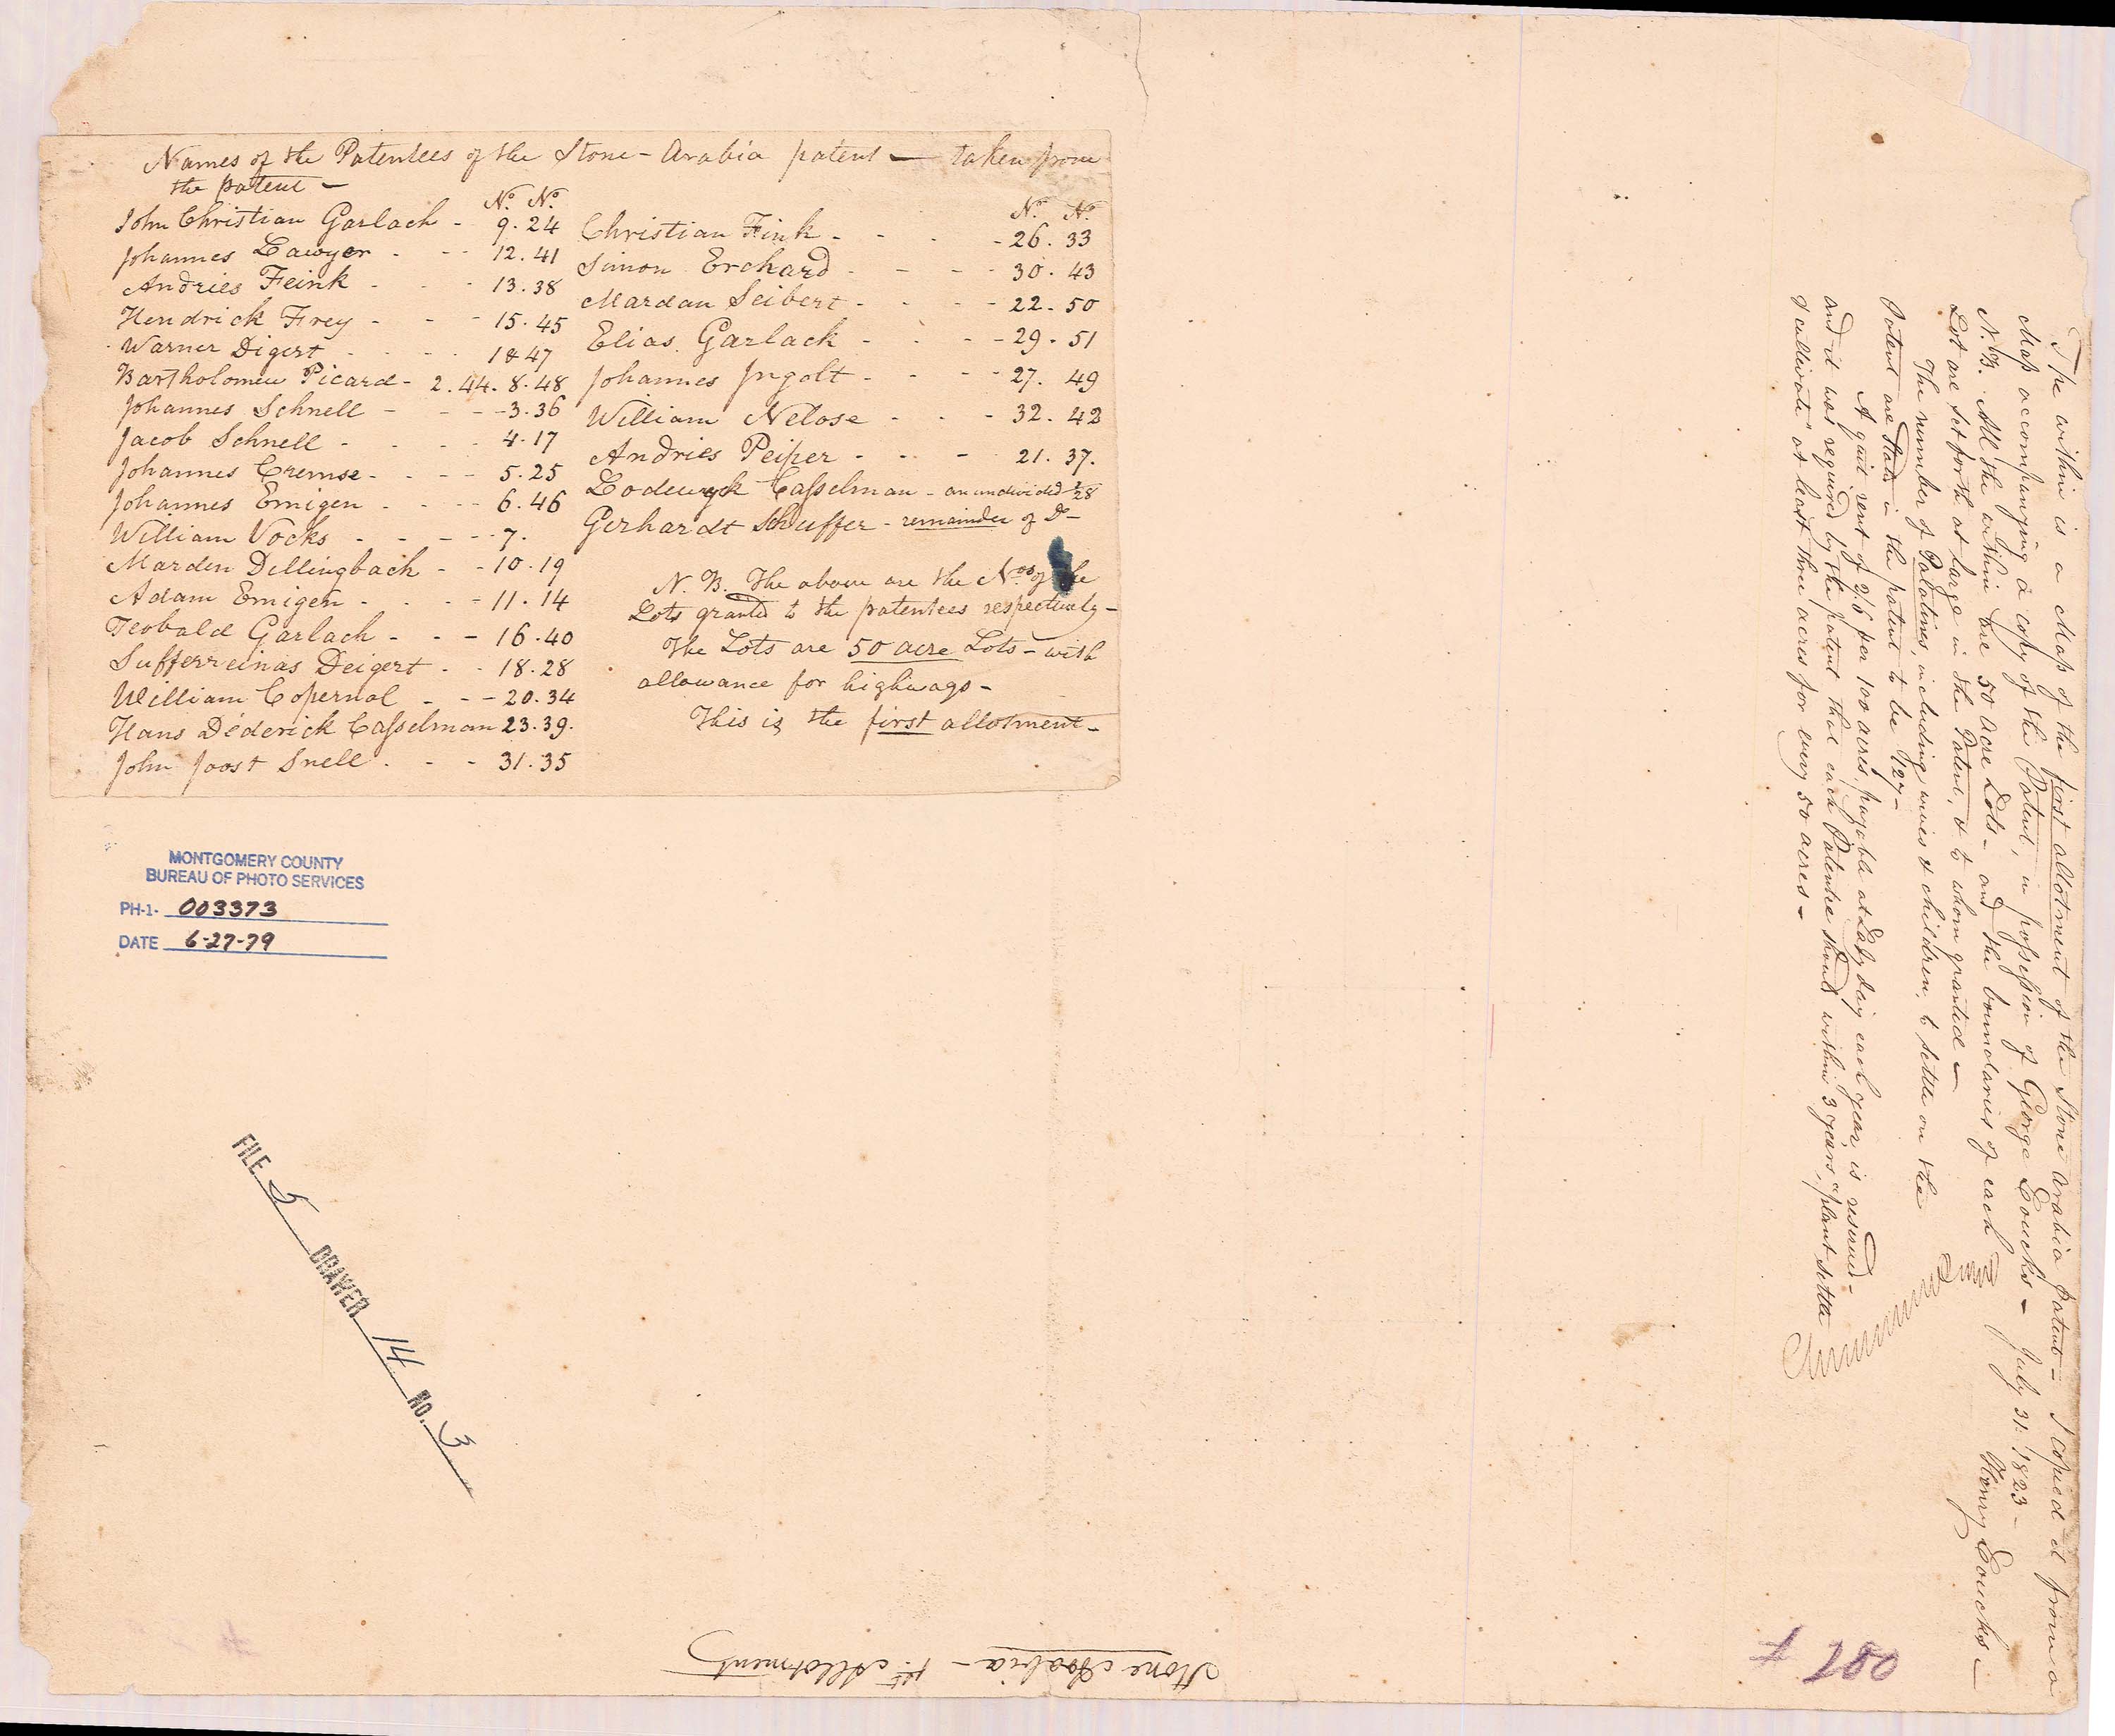 Names of the Patentees of the Stone-Arabia patent — taken from
the patent —
No. No.
John Christian Garlach - 9. 24
Johannes Lawyer - - - 12. 41
Andries Feink - - - 13. 38
Hendrick Frey - - - 15. 45
Warner Digert - - - - 1 & 47
Bartholomew Picard - 2. 44. 8. 48
Johannes Schnell - - - 3. 36
Jacob Schnell - - - - 4. 17
Johannes Cremse - - - - 5. 25
Johannes Emigen - - - - 6. 46
William Vocks - - - - - 7.
Marden Dillingbach - - 10. 19
Adam Emigen - - - - 11. 14
Teobald Garlach - - - 16. 40
Sufferreinas Deigert - - 18. 28
William Copernol - - - 20. 34
Hans Dederick Casselman 23. 39.
John Joost Snell - - - 31. 35
No. No.
Christian Fink - - - - 26. 33
Simon Erchard - - - - 30. 43
Mardan Seibert - - - - 22. 50
Elias Garlack - - - - 29. 51
Johannes Ingolt - - - - 27. 49
William Nelose - - - 32. 42
Andries Peiper - - - 21. 37.
Lodewyck Casselman - an undivided 1/28
Gerhardt Schuffer - remainder of Do -
N. B. The above are the Nos. of the
Lots granted to the patentees respectively -
The Lots are 50 acre Lots - with
allowance for highways -
This is the first allotment -
MONTGOMERY COUNTY
BUREAU OF PHOTO SERVICES
PH-1- 003373
DATE 6-27-79
FILE 5 DRAWER 14 NO. 3
Stone Arabia - 1st Allotment
The within is a Map of the first allotment of the Stone Arabia patent - I copied it from a
Map accompanying a copy of the Patent, in possession of George Loucks - July 31. 1823 -
Henry Loucks -
N.B. All the within are 50 acre Lots - and the boundaries of each
Lot are set forth at large in the Patent, & to whom granted -
The number of Palatines, including wives & children, to settle on the
Patent are stated in the patent to be 127 -
A quit rent of 2/6 per 100 acres, payable at Lady day each year is reserved -
and it was required by the patent that each Patentee should within 3 years, plant settle
& cultivate at least three acres for every 50 acres -
# 780